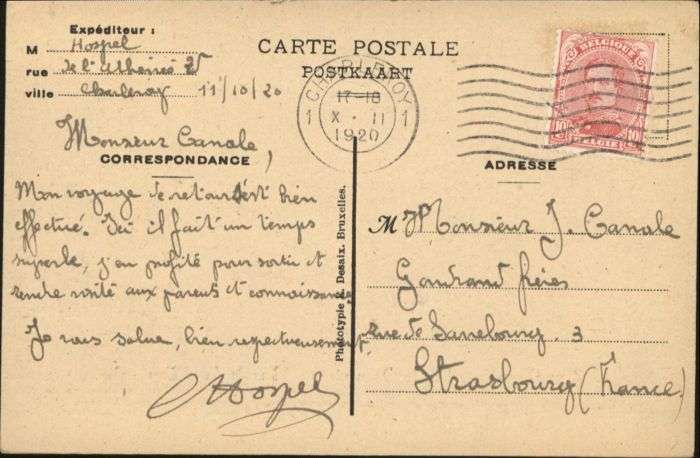 Expéditeur :
M Hospel
rue de l'Athénée 25
ville Charleroy 11/10/20
CARTE POSTALE
POSTKAART
CHARLEROY
1 1
17-18
X · II
1920
BELGIQUE
10 10
BELGIË
Monsieur Canale,
CORRESPONDANCE
Mon voyage de retour s'est bien
effectué. Ici il fait un temps
superbe, j'en profite pour sortir et
rendre visite aux parents et connaissances.
Je vous salue, bien respectueusement
Hospel
Phototypie Desaix. Bruxelles.
ADRESSE
M Monsieur J. Canale
Gondrand frères
rue de Sarrebourg, 3
Strasbourg (France)